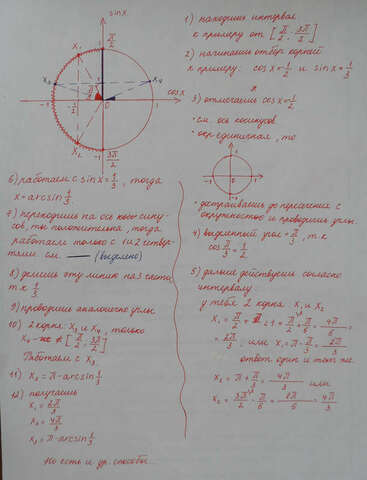 sin x
π/2
x₁
x₃
x₄
cos x
-1
-1/2
π/3
0
1
x₂
-1
3π/2
1) находишь интервал
к примеру от [π/2; 3π/2]
2) начинаешь отбор корней
к примеру: cosx=-1/2 и sinx=1/3
3) отмечаешь cosx=-1/2
• см. ось косинусов
• окр. единичная, то
• достраиваешь до пересечения с
окружностью и проводишь углы.
4) выделенный угол = π/3, т.к
cos π/3 = 1/2
5) дальше действуешь согласно
интервалу:
у тебя 2 корня: x₁ и x₂
x₁ = π/2 + π/6 = 4π/6 =
= 2π/3, или x₁ = π - π/3 = 2π/3
ответ один и тот же.
x₂ = π + π/3 = 4π/3 или
x₂ = 3π/2 - π/6 = 8π/6 = 4π/3
6) работаем с sinx = 1/3, тогда
x = arcsin 1/3
7) переходишь на ось сину-
сов, т.к положительна, тогда
работаем только с 1 и 2 четвер-
тями см. — (выделено)
8) делишь эту линию на 3 части,
т.к 1/3
9) проводишь аналогично углы
10) 2 корня: x₃ и x₄, только
x₄ ∉ [π/2; 3π/2]
Работаем с x₃
11) x₃ = π - arcsin 1/3
12) получаешь
x₁ = 2π/3
x₂ = 4π/3
x₃ = π - arcsin 1/3
Но есть и др. способы...